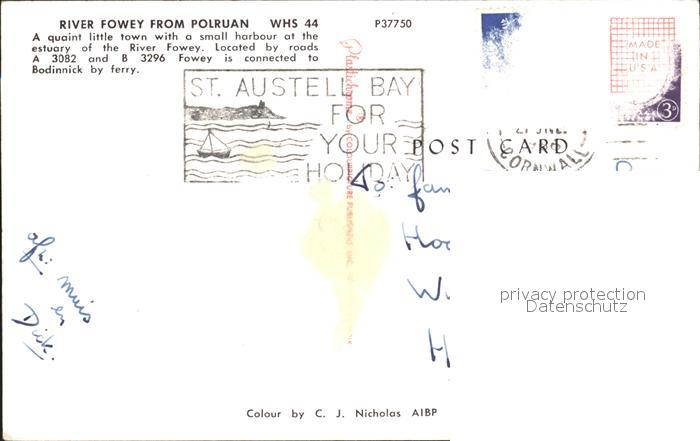 RIVER FOWEY FROM POLRUAN WHS 44
P37750
A quaint little town with a small harbour at the
estuary of the River Fowey. Located by roads
A 3082 and B 3296 Fowey is connected to
Bodinnick by ferry.
MADE
IN
U.S.A.
3D
ST. AUSTELL BAY
FOR
YOUR
HOLIDAY
POST CARD
CORNWALL
Plastichrome
To: fam
Hoo
W
H
mies
en
Dick.
privacy protection
Datenschutz
Colour by C. J. Nicholas AIBP